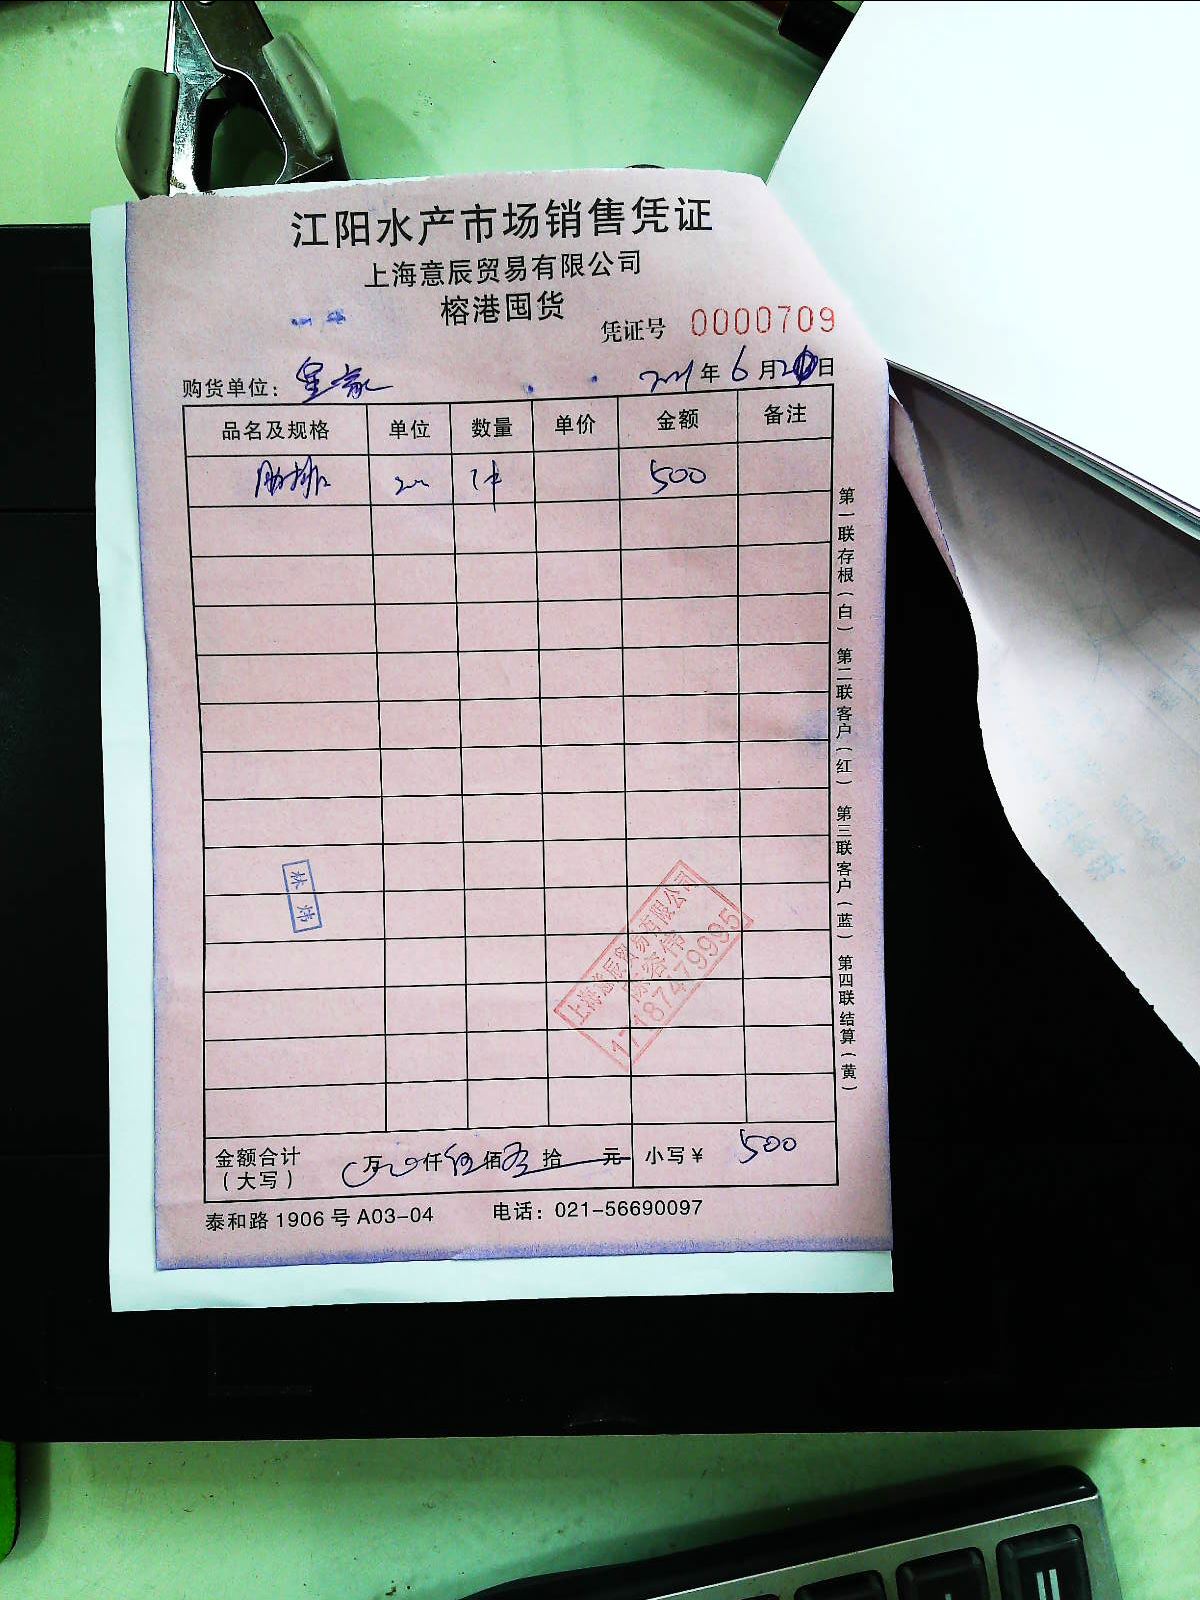 江阳水产市场销售凭证
上海意辰贸易有限公司
榕港囤货
凭证号 0000709
购货单位: 年 6 月 日
品名及规格 单位 数量 单价 金额 备注
肋排 500
第一联存根(白) 第二联客户(红) 第三联客户(蓝) 第四联结算(黄)
林炜
上海意辰贸易有限公司
17187479995
金额合计 万 仟 伍 佰 拾 元 小写¥ 500
(大写)
泰和路1906号A03-04 电话: 021-56690097